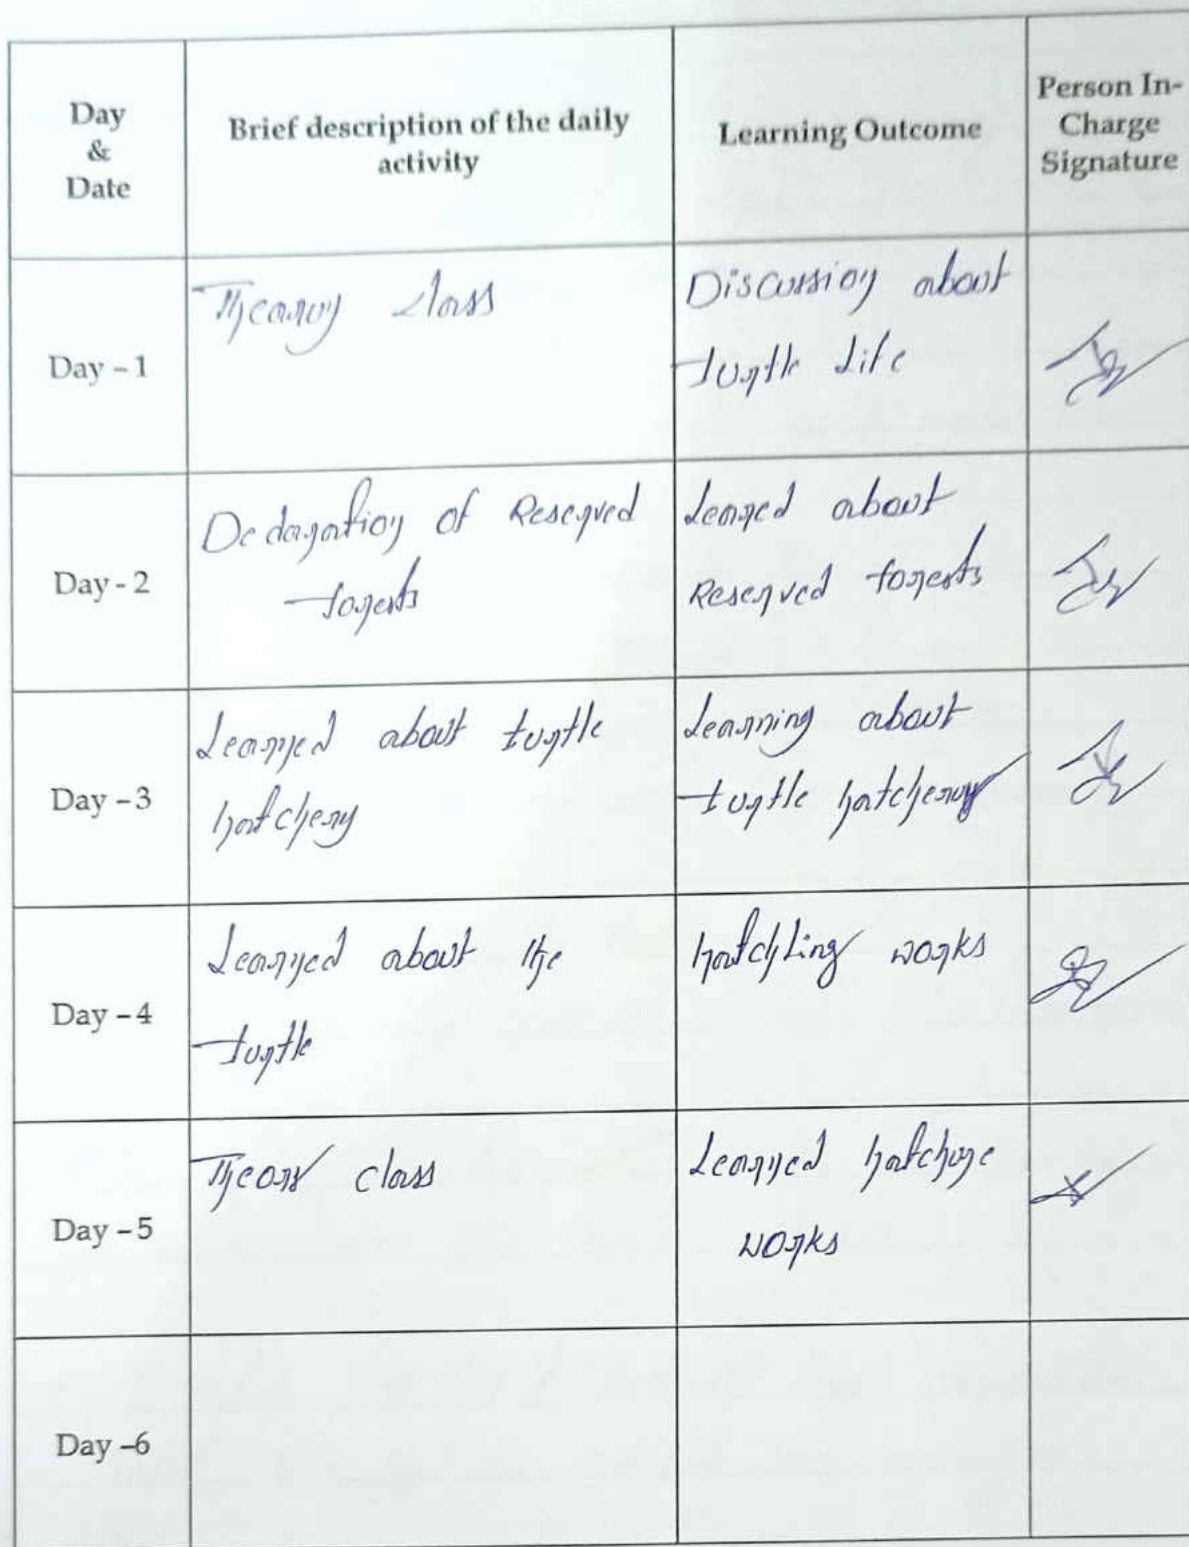 Day
&
Date
Brief description of the daily
activity
Learning Outcome
Person In-
Charge
Signature
Day - 1
Theory class
Discussion about
turtle life
Day - 2
Declaration of Reserved
forests
Learned about
Reserved forests
Day - 3
Learned about turtle
hatchery
Learning about
turtle hatchery
Day - 4
Learned about the
turtle
hatchling works
Day - 5
Theory class
Learned
works
Day -6